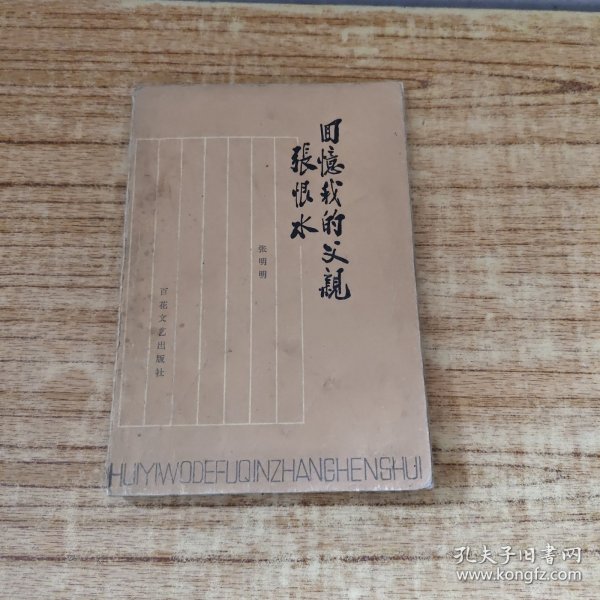 回憶我的父親
張恨水
张明明
百花文艺出版社
HUIYIWODEFUQINZHANGHENSHUI
孔夫子旧書网
www.kongfz.com